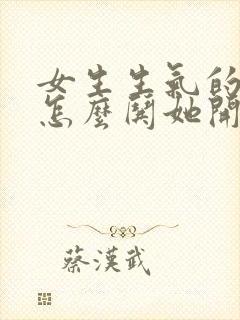 女生生氣的
怎麼鬨她開
蔡漢武